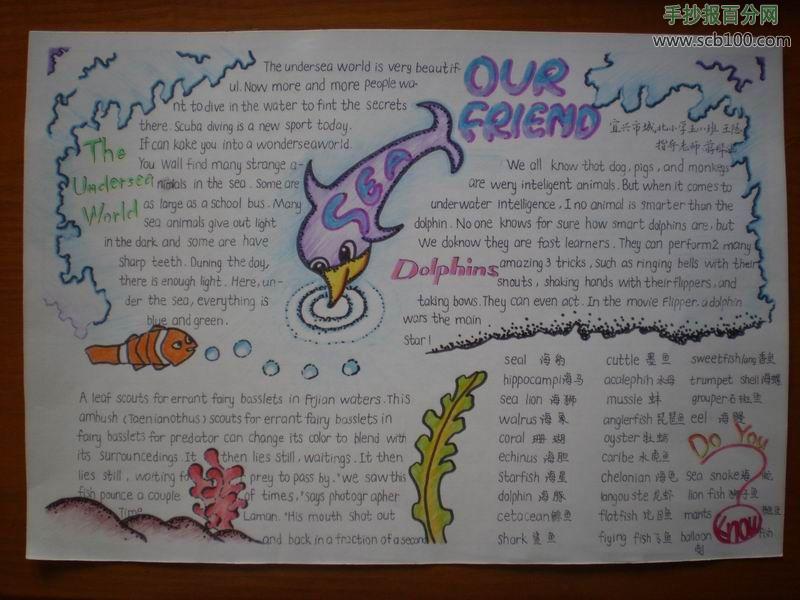 手抄报百分网
www.scb100.com
OUR
FRIEND
宜兴市城北小学五
指导老师
The
Undersea
World
The undersea world is very beautif
ul. Now more and more people wa-
nt to dive in the water to fint the secrets
there. Scuba diving is a new sport today.
If can kake you into a wonderseaworld.
You wall find many strange a-
nimals in the sea. Some are
as large as a school bus. Many
sea animals give out light
in the dark and some are have
sharp teeth. During the day,
there is enough light. Here, un-
der the sea, everything is
blue and green.
SEA
Dolphins
We all know that dog, pigs, and monkeys
are very inteligent animals. But when it comes to
underwater intelligence, I no animal is smarter than the
dolphin. No one knows for sure how smart dolphins are, but
We doknow they are fast learners. They can perform 2 many
amazing 3 tricks, such as ringing bells with their
snouts, shaking hands with their flippers, and
taking bows. They can even act. In the movie Flipper. a dolphin
wars the main
Star!
A leaf scouts for errant fairy basslets in Fijian waters. This
ambush (Taenianothus) scouts for errant fairy basslets in
fairy basslets for predator can change its color to blend with
its surroundings. It then lies still, waitings. It then
lies still, waiting fo prey to pass by. "we saw this
fish pounce a couple of times," says photographer
Time Laman. "His mouth shot out
and back in a fraction of a second
seal 海豹 cuttle 墨鱼 sweetfish 香鱼
hippocampi 海马 acalephih 水母 trumpet shell 海螺
sea lion 海狮 mussle 蚌 grouper 石斑鱼
walrus 海象 anglerfish 琵琶鱼 eel 海鳗
coral 珊瑚 oyster 牡蛎
echinus 海胆 caribe 水虎鱼
starfish 海星 chelonian 海龟 sea snake
dolphin 海豚 langouste 龙虾 lion fish 狮子鱼
cetacean 鲸鱼 flatfish 比目鱼 mants
shark 鲨鱼 flying fish 飞鱼 balloon fish
Do You
Know
?